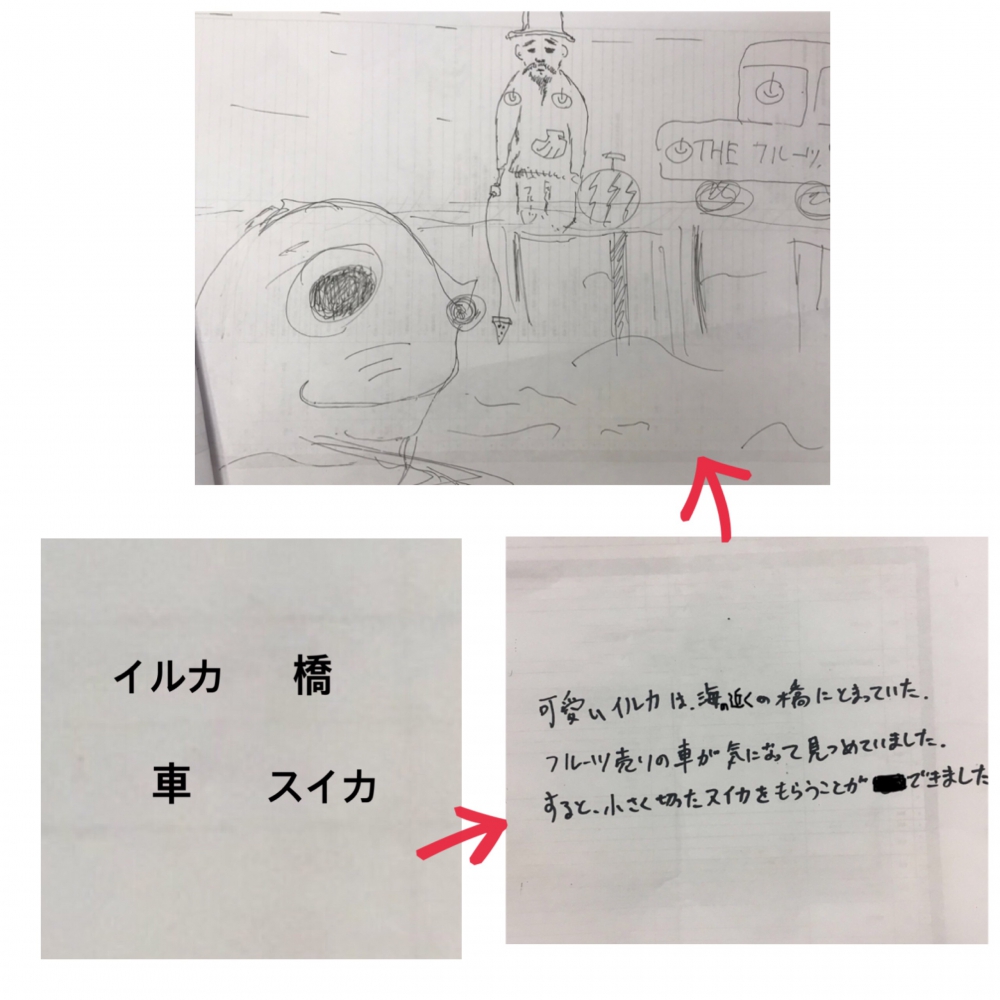 THE フルーツ
フルーツ
イルカ 橋
車 スイカ
可愛いイルカは、海の近くの橋にとまっていた。
フルーツ売りの車が気になって見つめていました。
すると、小さく切ったスイカをもらうことができました